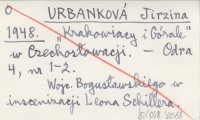 O URBANKOVÁ Jirzina
1948. "Krakowiacy i Górale"
w Czechosłowacji. — Odra
4, nr 1-2.
Wojc. Bogusławskiego w
inscenizacji Leona Schillera.